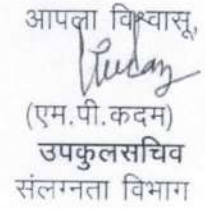 आपला विश्वासू,
(एम.पी.कदम)
उपकुलसचिव
संलग्नता विभाग